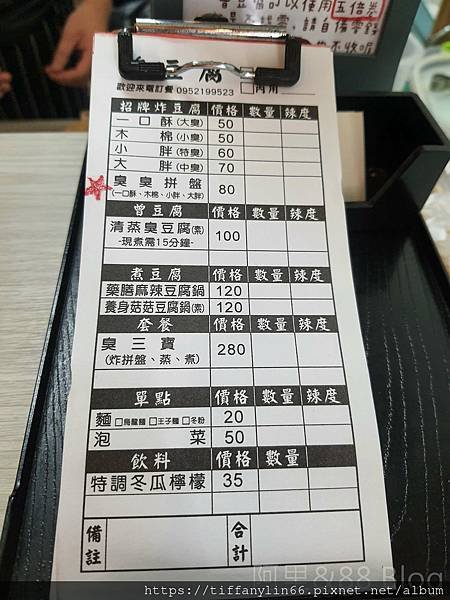 豆腐可以使用五倍券
請自備零錢
豆腐
歡迎來電訂餐 0952199523 □內用
招牌炸豆腐 價格 數量 辣度
一口酥(大臭) 50
木棉(小臭) 50
小胖(特臭) 60
大胖(中臭) 70
臭臭拼盤 80
(一口酥、木棉、小胖、大胖)
曾豆腐 價格 數量 辣度
清蒸臭豆腐(素) 100
-現煮需15分鐘-
煮豆腐 價格 數量 辣度
藥膳麻辣豆腐鍋 120
養身菇菇豆腐鍋(素) 120
套餐 價格 數量 辣度
臭三寶 280
(炸拼盤、蒸、煮)
單點 價格 數量 辣度
麵 □烏龍麵 □王子麵 □冬粉 20
泡菜 50
飲料 價格 數量
特調冬瓜檸檬 35
備註 合計
阿里&88 Blog
https://tiffanylin66.pixnet.net/album